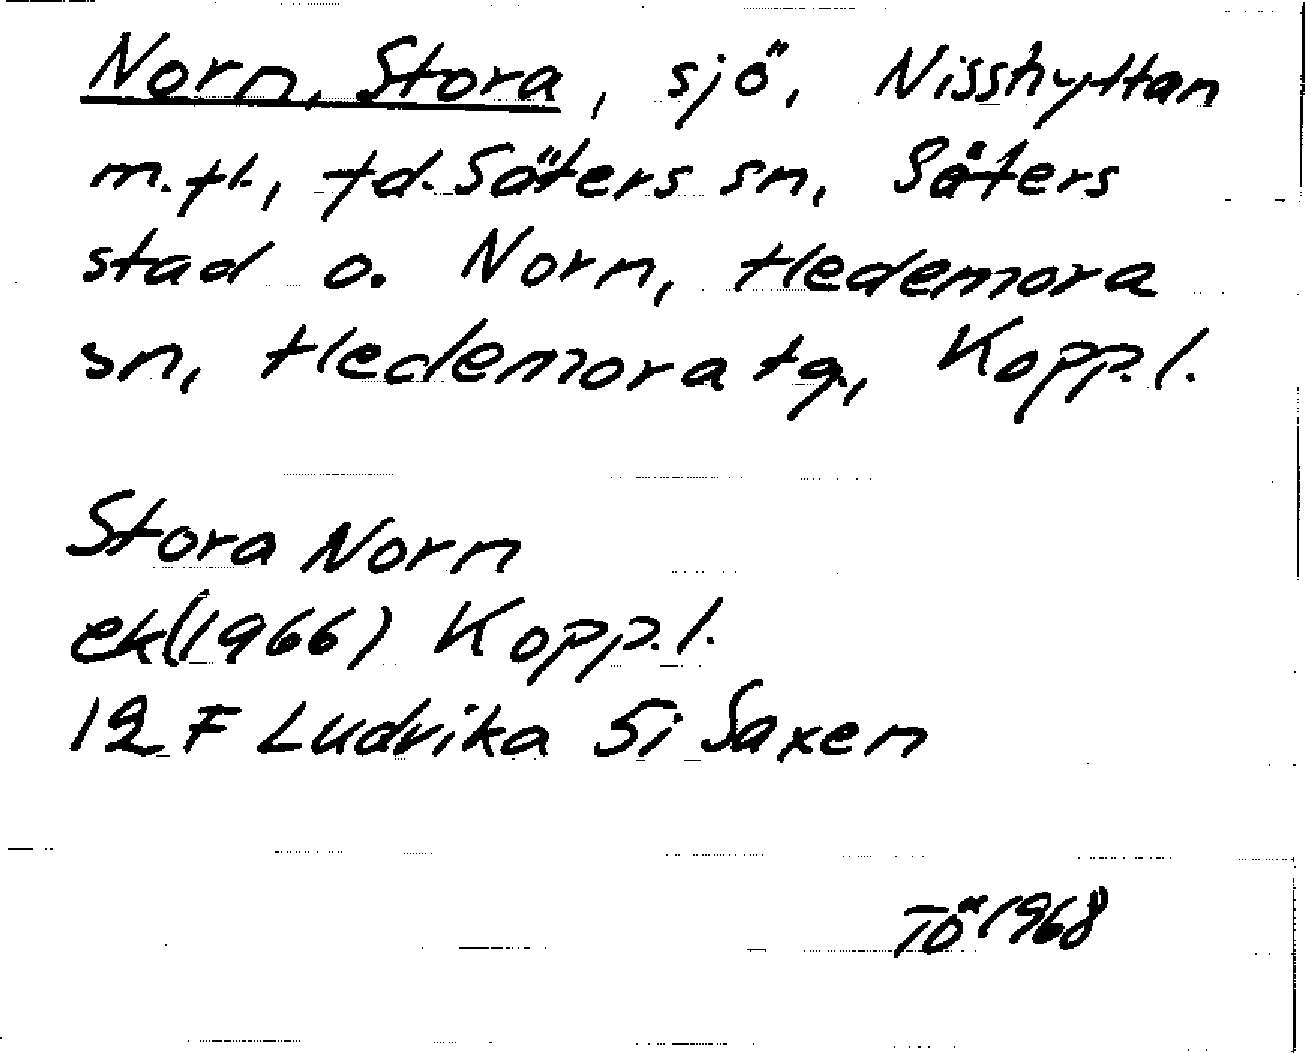 Norn, Stora, sjö, Nisshyttan
m.fl., fd. Säters sn, Säters
stad o. Norn, Hedemora
sn, Hedemora tg, Kopp.l.
Stora Norn
ek(1966) Kopp.l.
12 F Ludvika 5i Saxen
TÖ 1968